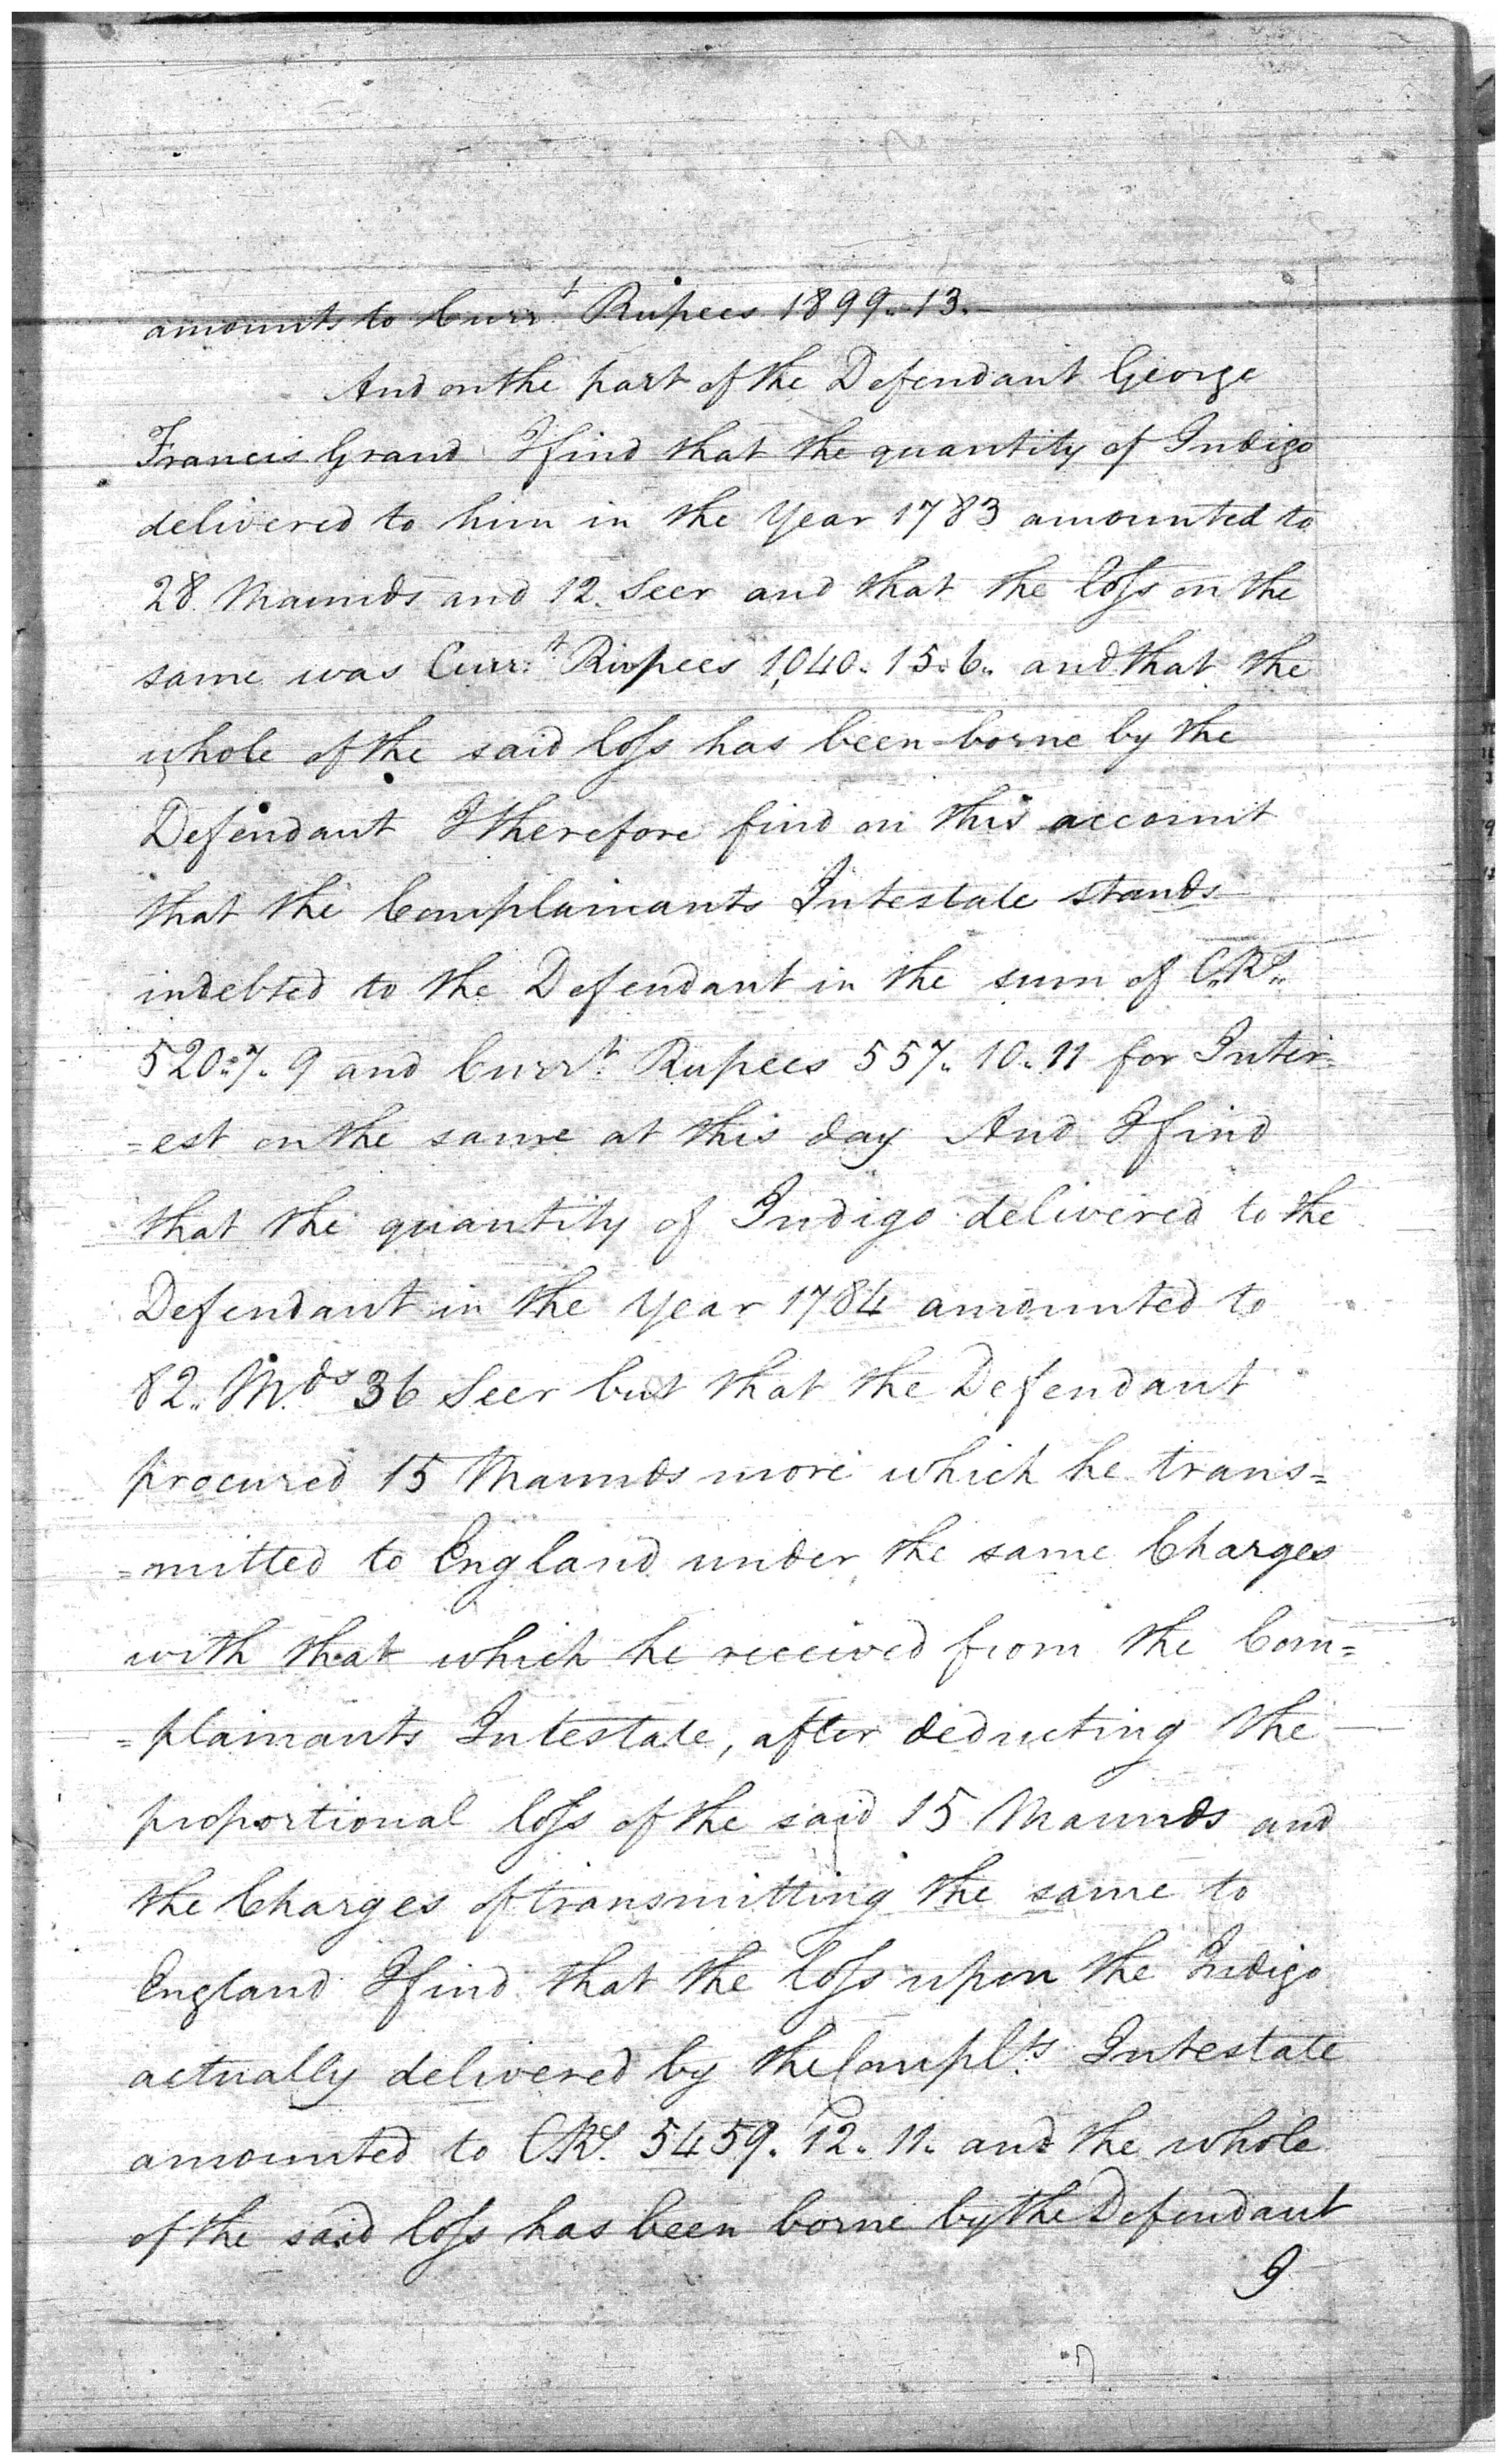 amounts to Curr.t Rupees 1899..13.
And on the part of the Defendant George
Francis Grand I find that the quantity of Indigo
delivered to him in the Year 1783 amounted to
28 Maunds and 12. Seer and that the loſs on the
same was Curr.t Rupees 1,040. 15. 6. and that the
whole of the said loſs has been borne by the
Defendant I therefore find on this account
that the Complainants Intestate stands
indebted to the Defendant in the sum of C.Rs.
520. 7. 9 and Curr.t Rupees 557. 10. 11 for Inter=
=est on the same at this day And I find
that the quantity of Indigo delivered to the
Defendant in the Year 1784 amounted to
82.. M.ds 36 Seer but that the Defendant
procured 15 Maunds more which he trans=
=mitted to England under the same Charges
with that which he received from the Com=
=plainants Intestate, after deducting the
proportional loſs of the said 15 Maunds and
the Charges of transmitting the same to
England I find that the loſs upon the Indigo
actually delivered by the Compl.ts Intestate
amounted to C.Rs. 5459. 12. 11. and the whole
of the said loſs has been borne by the Defendant
I